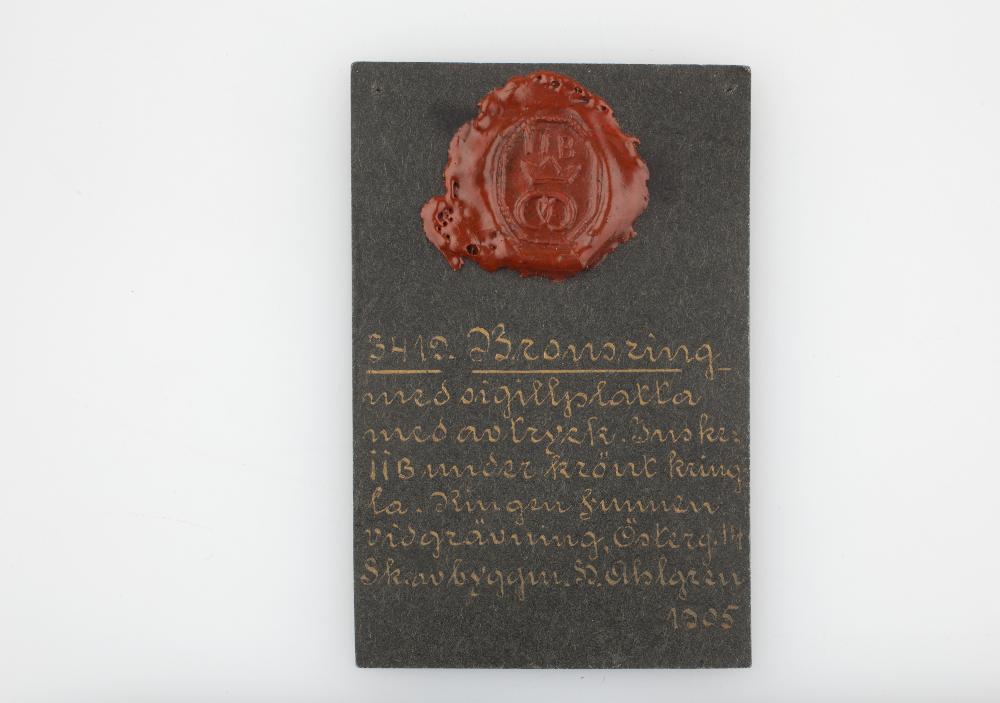 IIB
3412. Bronsring
med sigillplatta
med avtryck. Inskr:
IIB under krönt kring-
la. Ringen funnen
vid grävning, Österg. 14
Sk. av byggm. N. Ahlgren
1905